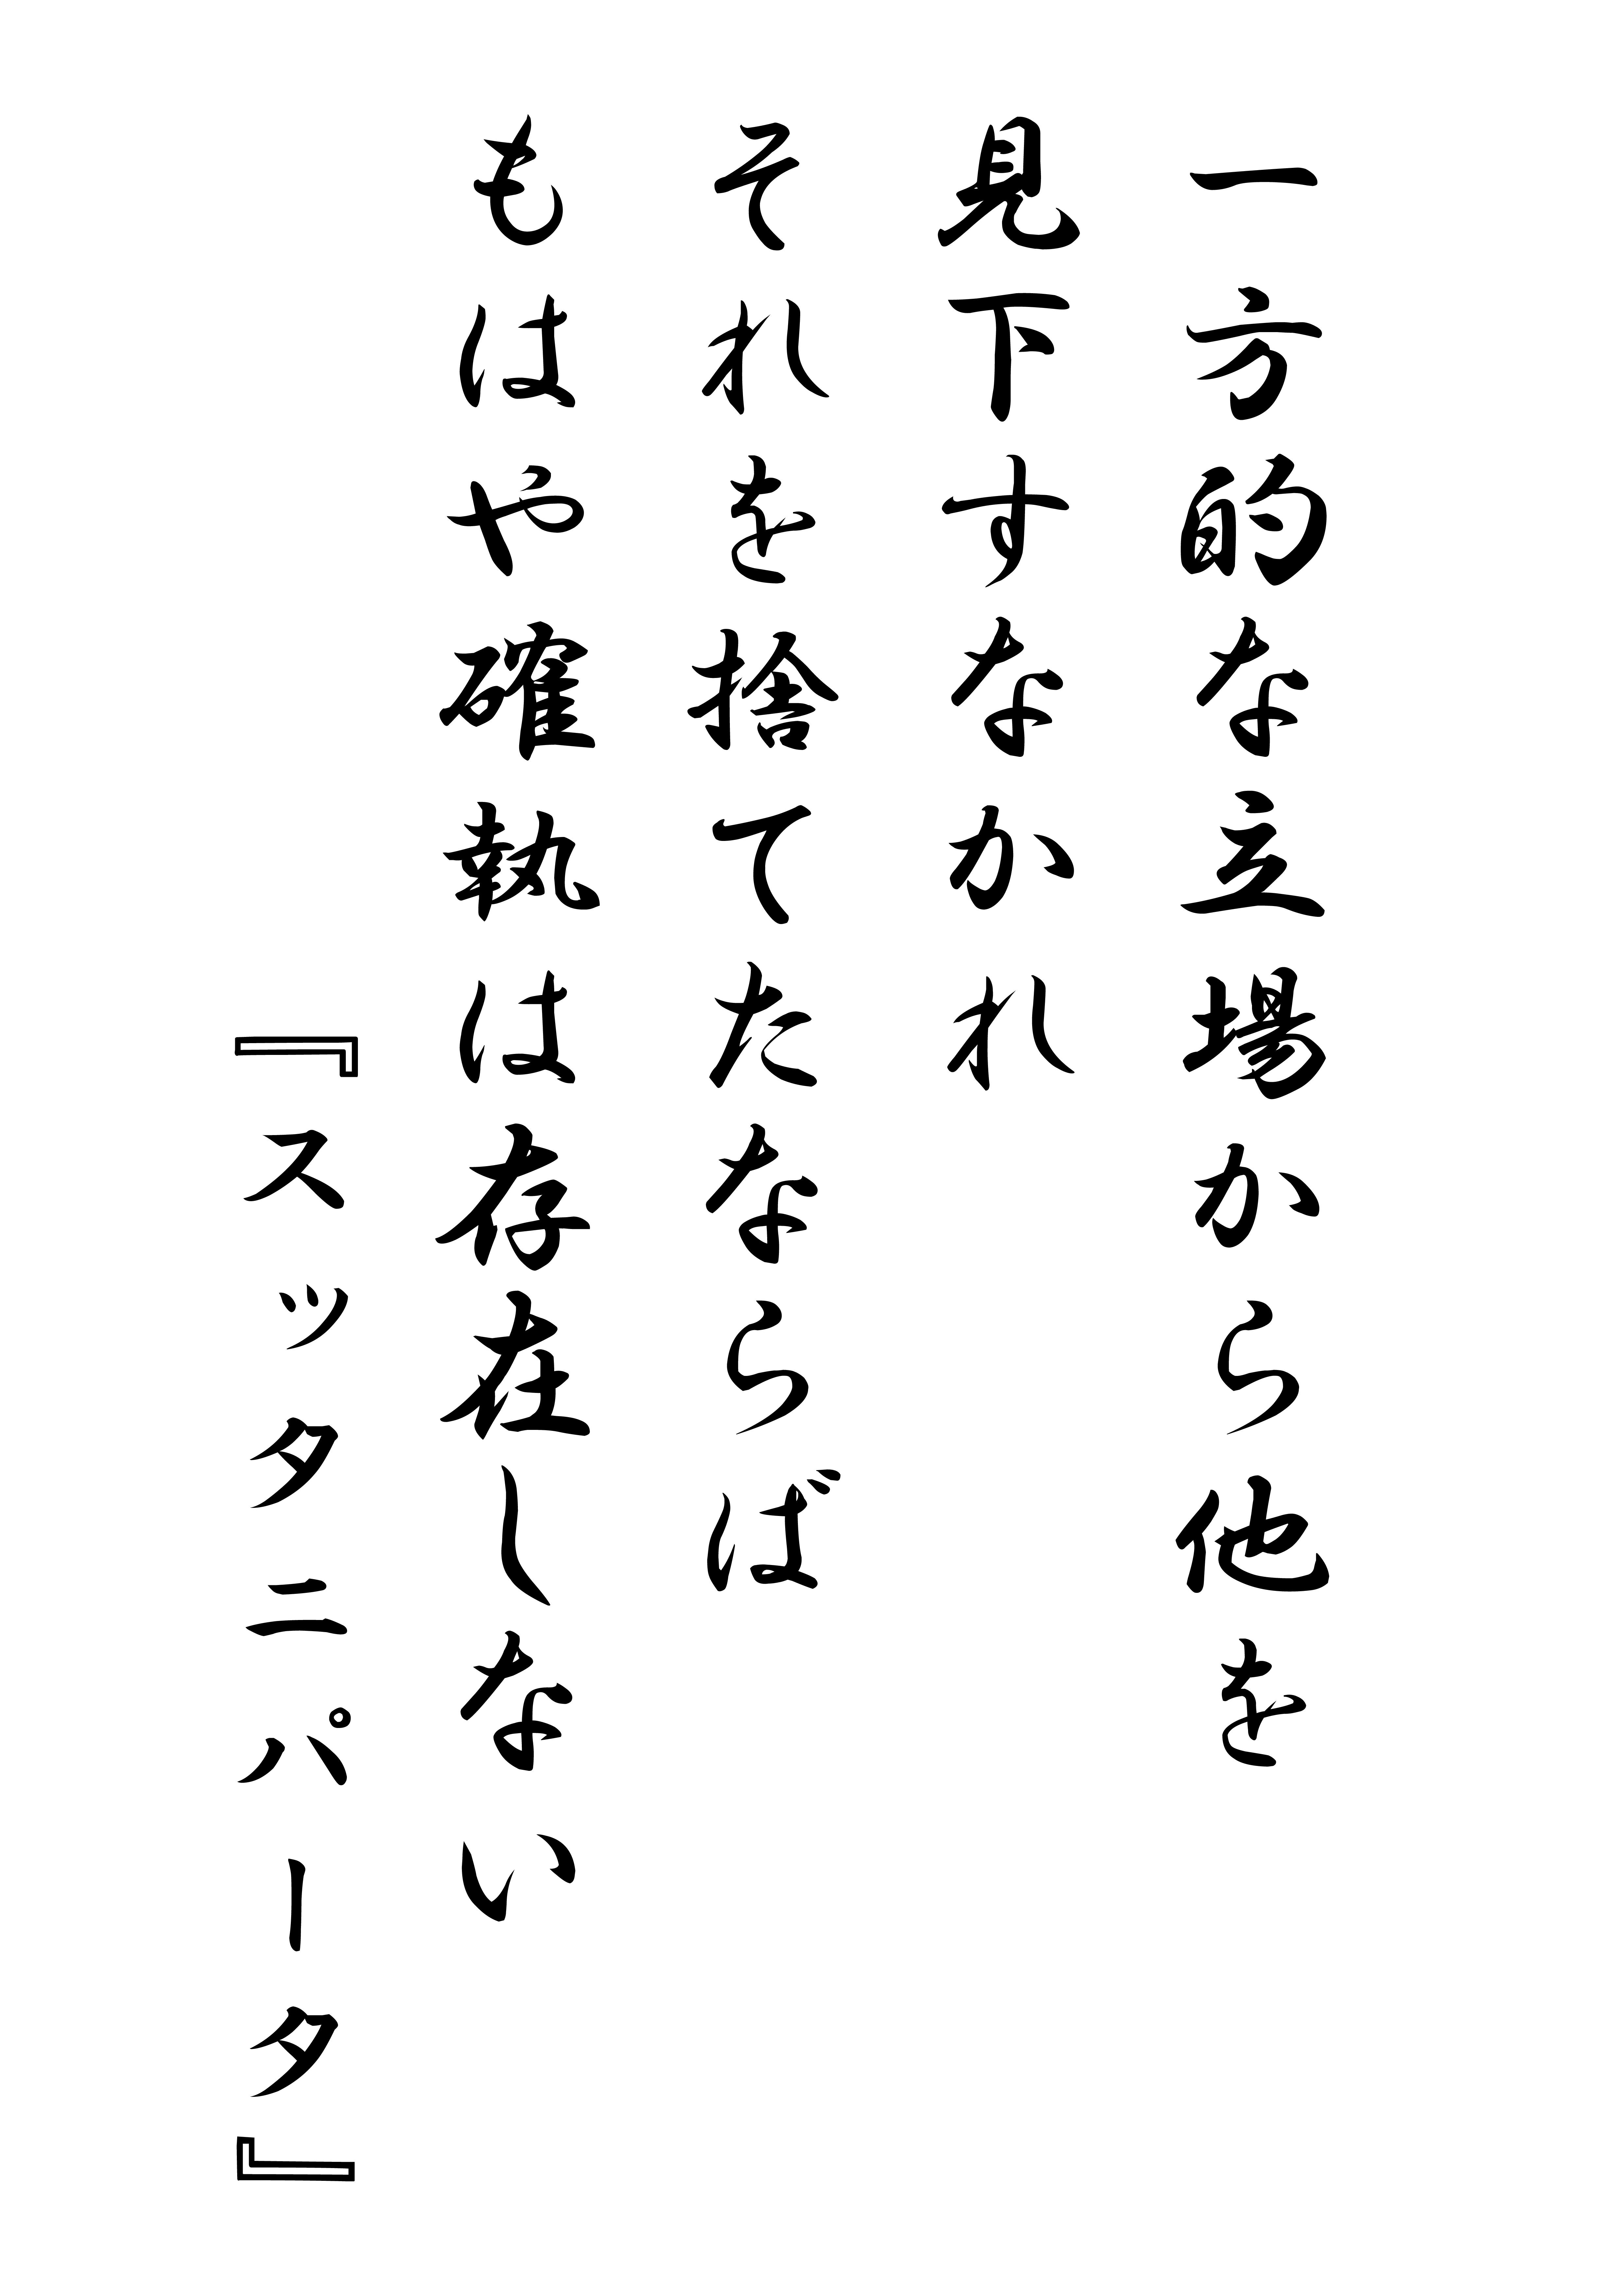 一方的な立場から他を
見下すなかれ
それを捨てたならば
もはや確執は存在しない
『スッタニパータ』